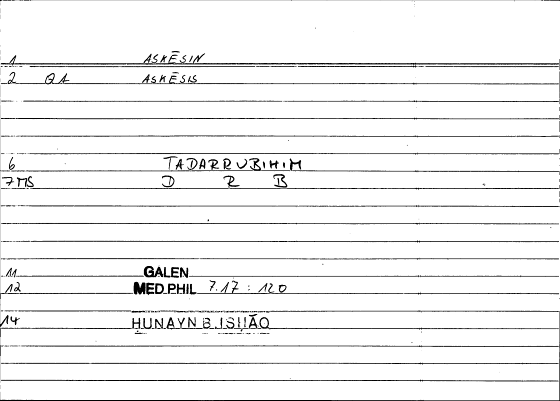 1 ASKĒSIN
2 QA ASKĒSIS
6 TADARRUBIHIM
7 MS D R B
11 GALEN
12 MED.PHIL 7.17 : 120
14 ḤUNAYN B. ISḤĀQ